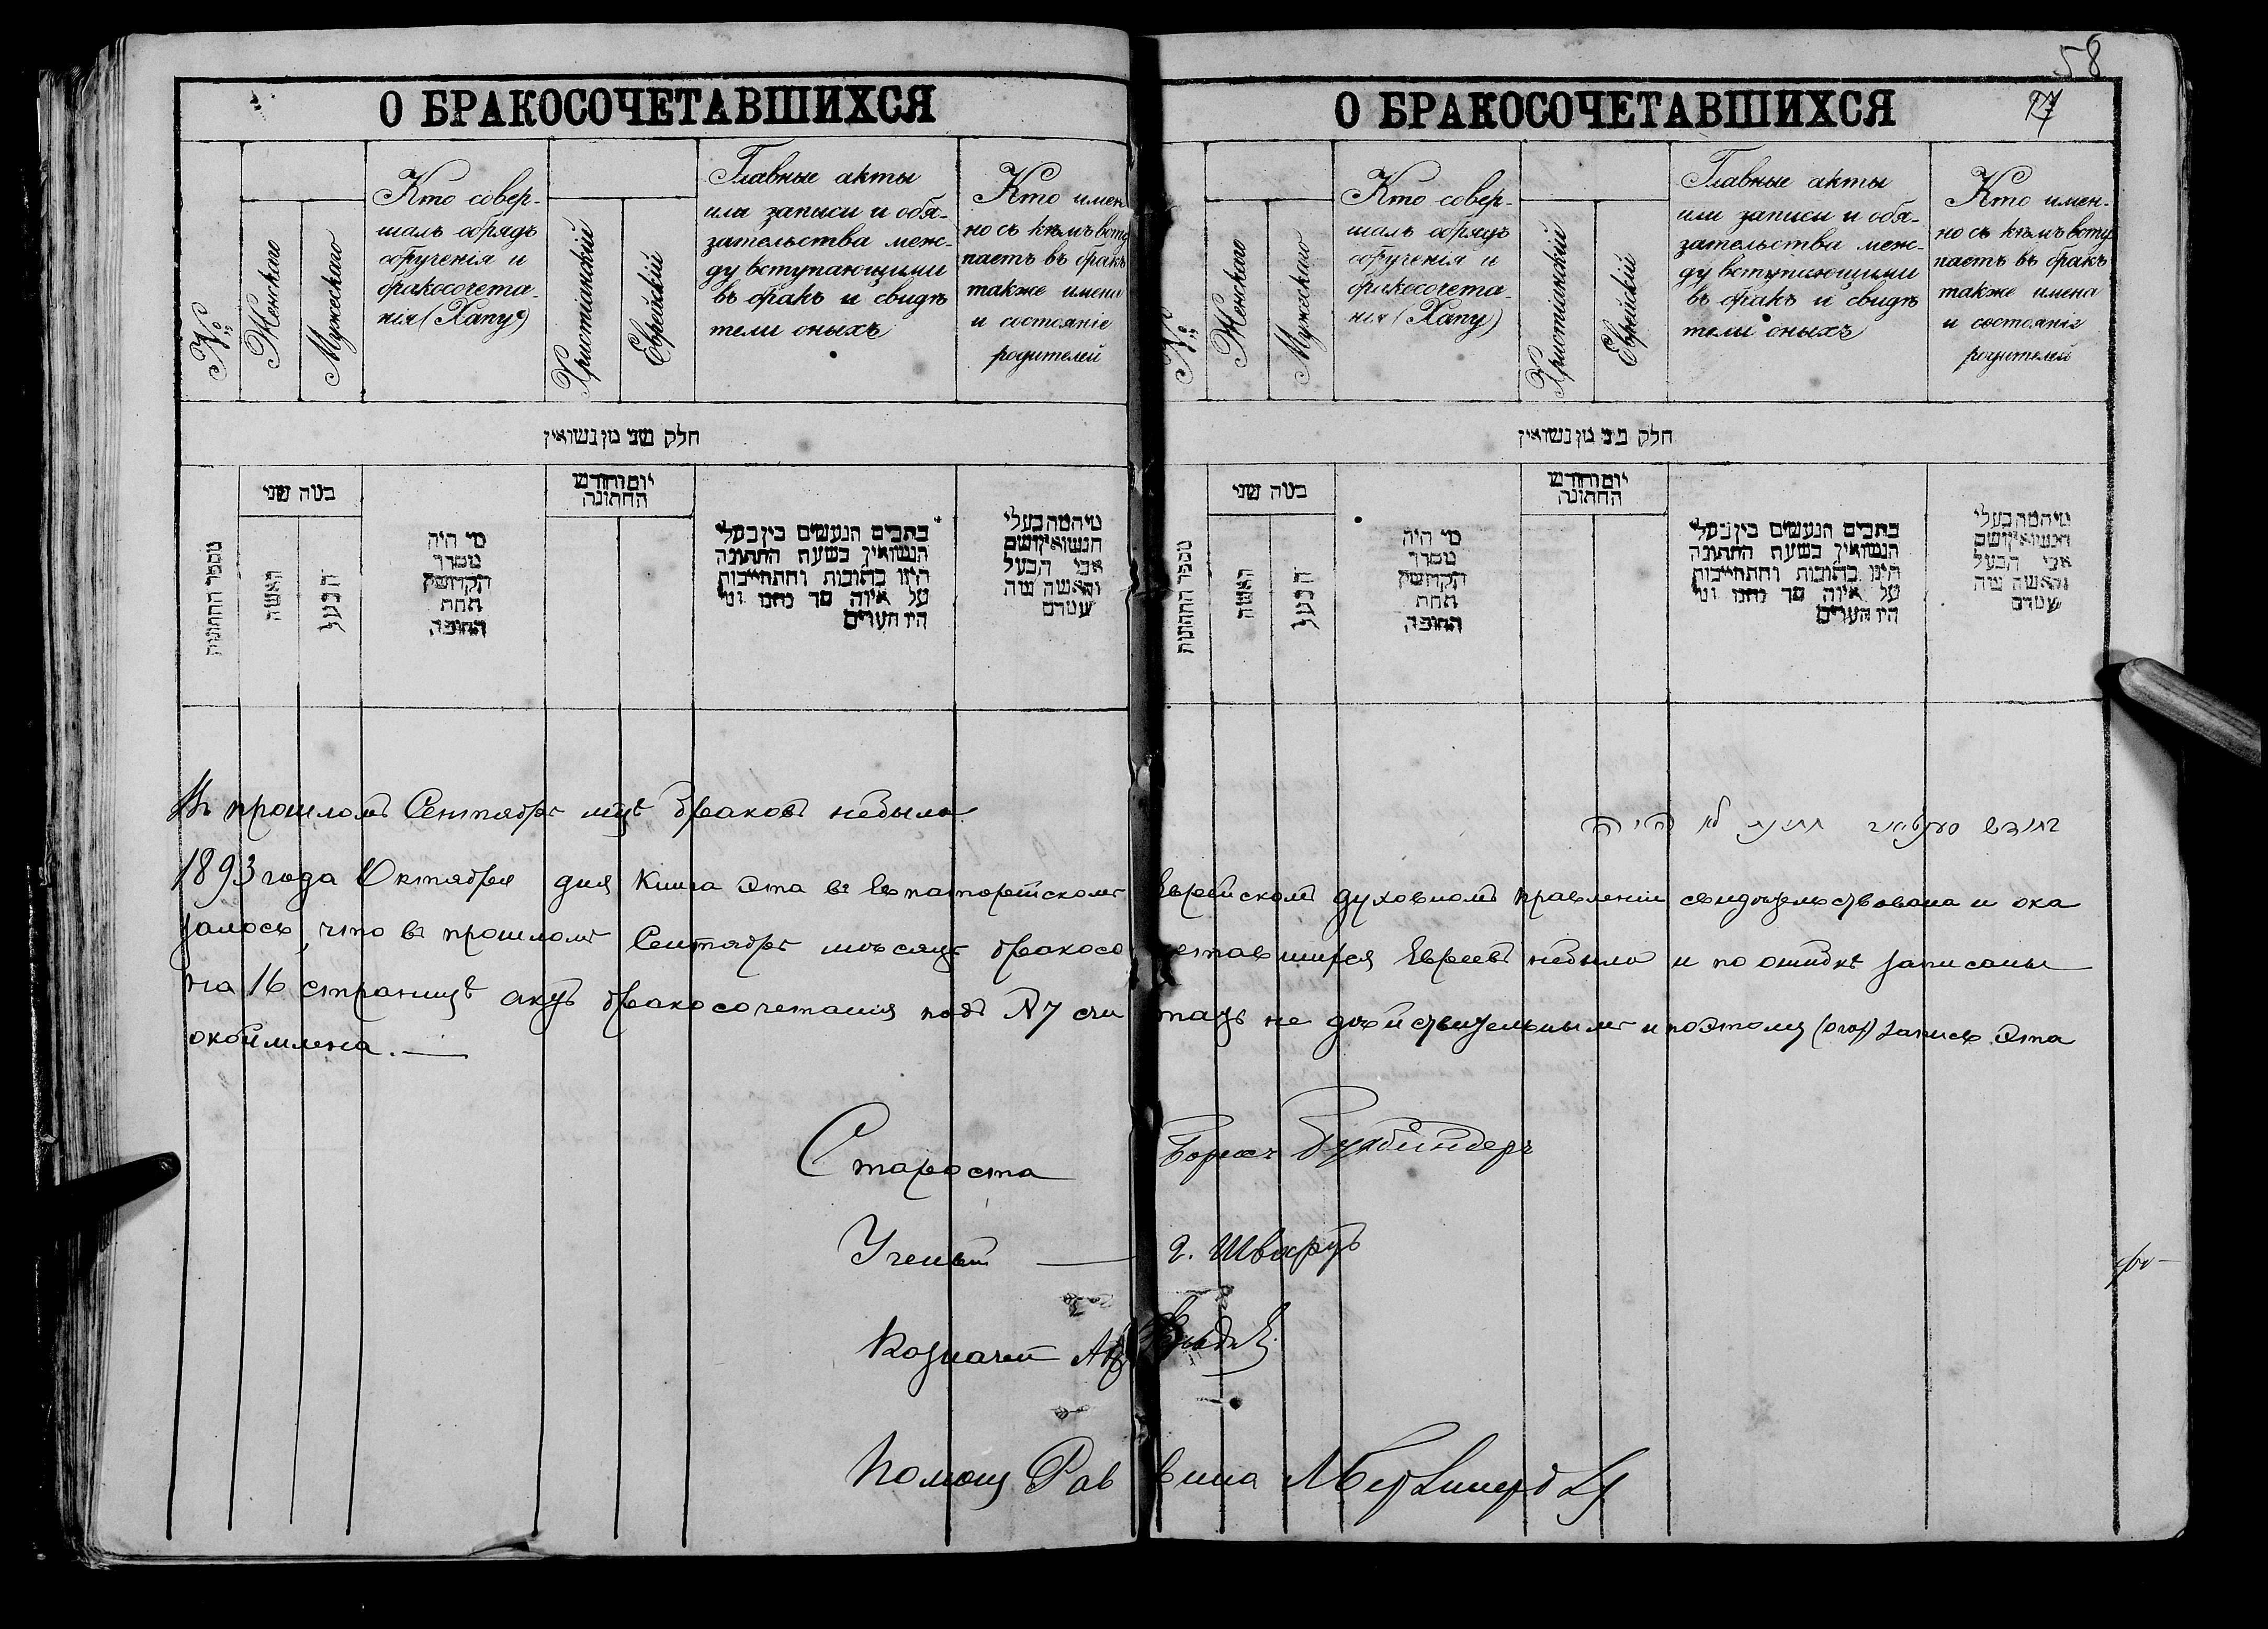 58
17
О БРАКОСОЧЕТАВШИХСЯ
№
Женскаго
Мужескаго
Кто совер-
шалъ обрядъ
обрученія и
бракосочета-
нія (Хапу)
Христіанскій
Еврейскій
Главные акты
или записи и обя-
зательства меж-
ду вступающими
въ бракъ и свидѣ
тели оныхъ
Кто имен
но съ кѣмъ всту
паетъ въ бракъ
также имена
и состояніе
родителей
חלק שני מן נשואין
מספר החתונות
בטה שני
האשה
הבעל
מי היה
מסדר
הקדושין
תחת
החופה
יום וחודש
החתונה
כתבים הנעשים בין בעלי
הנשואין בשעת החתונה
היינו כתובות והתחייבות
על איזה סך נתנו ומי
היו העדים
הנשואין ושם
אבי הבעל
והאשה
О БРАКОСОЧЕТАВШИХСЯ
№
Женскаго
Мужескаго
Кто совер-
шалъ обрядъ
обрученія и
бракосочета-
нія (Хапу)
Христіанскій
Еврейскій
Главные акты
или записи и обя-
зательства меж-
ду вступающими
въ бракъ и свидѣ
тели оныхъ
Кто имен-
но съ кѣмъ всту
паетъ въ бракъ
также имена
и состояніе
родителей
חלק שני מן נשואין
מספר החתונות
בטה שני
האשה
הבעל
מי היה
מסדר
הקדושין
תחת
החופה
יום וחודש
החתונה
כתבים הנעשים בין בעלי
הנשואין בשעת החתונה
היינו כתובות והתחייבות
על איזה סך נתנו ומי
היו העדים
הנשואין ושם
אבי הבעל
והאשה
Въ прошломъ Сентябрѣ мцѣ браковъ небыло
בחודש לא היה
1893 года Октября дня Книга эта въ Евпаторійскомъ Еврейскомъ духовномъ правленіи свидѣтельствована и ока
залось, что въ прошломъ Сентябрѣ мѣсяцѣ бракосочетавшихся Евреевъ небыло и по ошибкѣ записаны
на 16 страницѣ актъ бракосочетанія подъ № 7 считать не дѣйствительнымъ и поэтому запись эта
окоймлена.
Староста Борисъ Букбиндеръ
Ученый Шварцъ
Казначей
Помощ Раввина